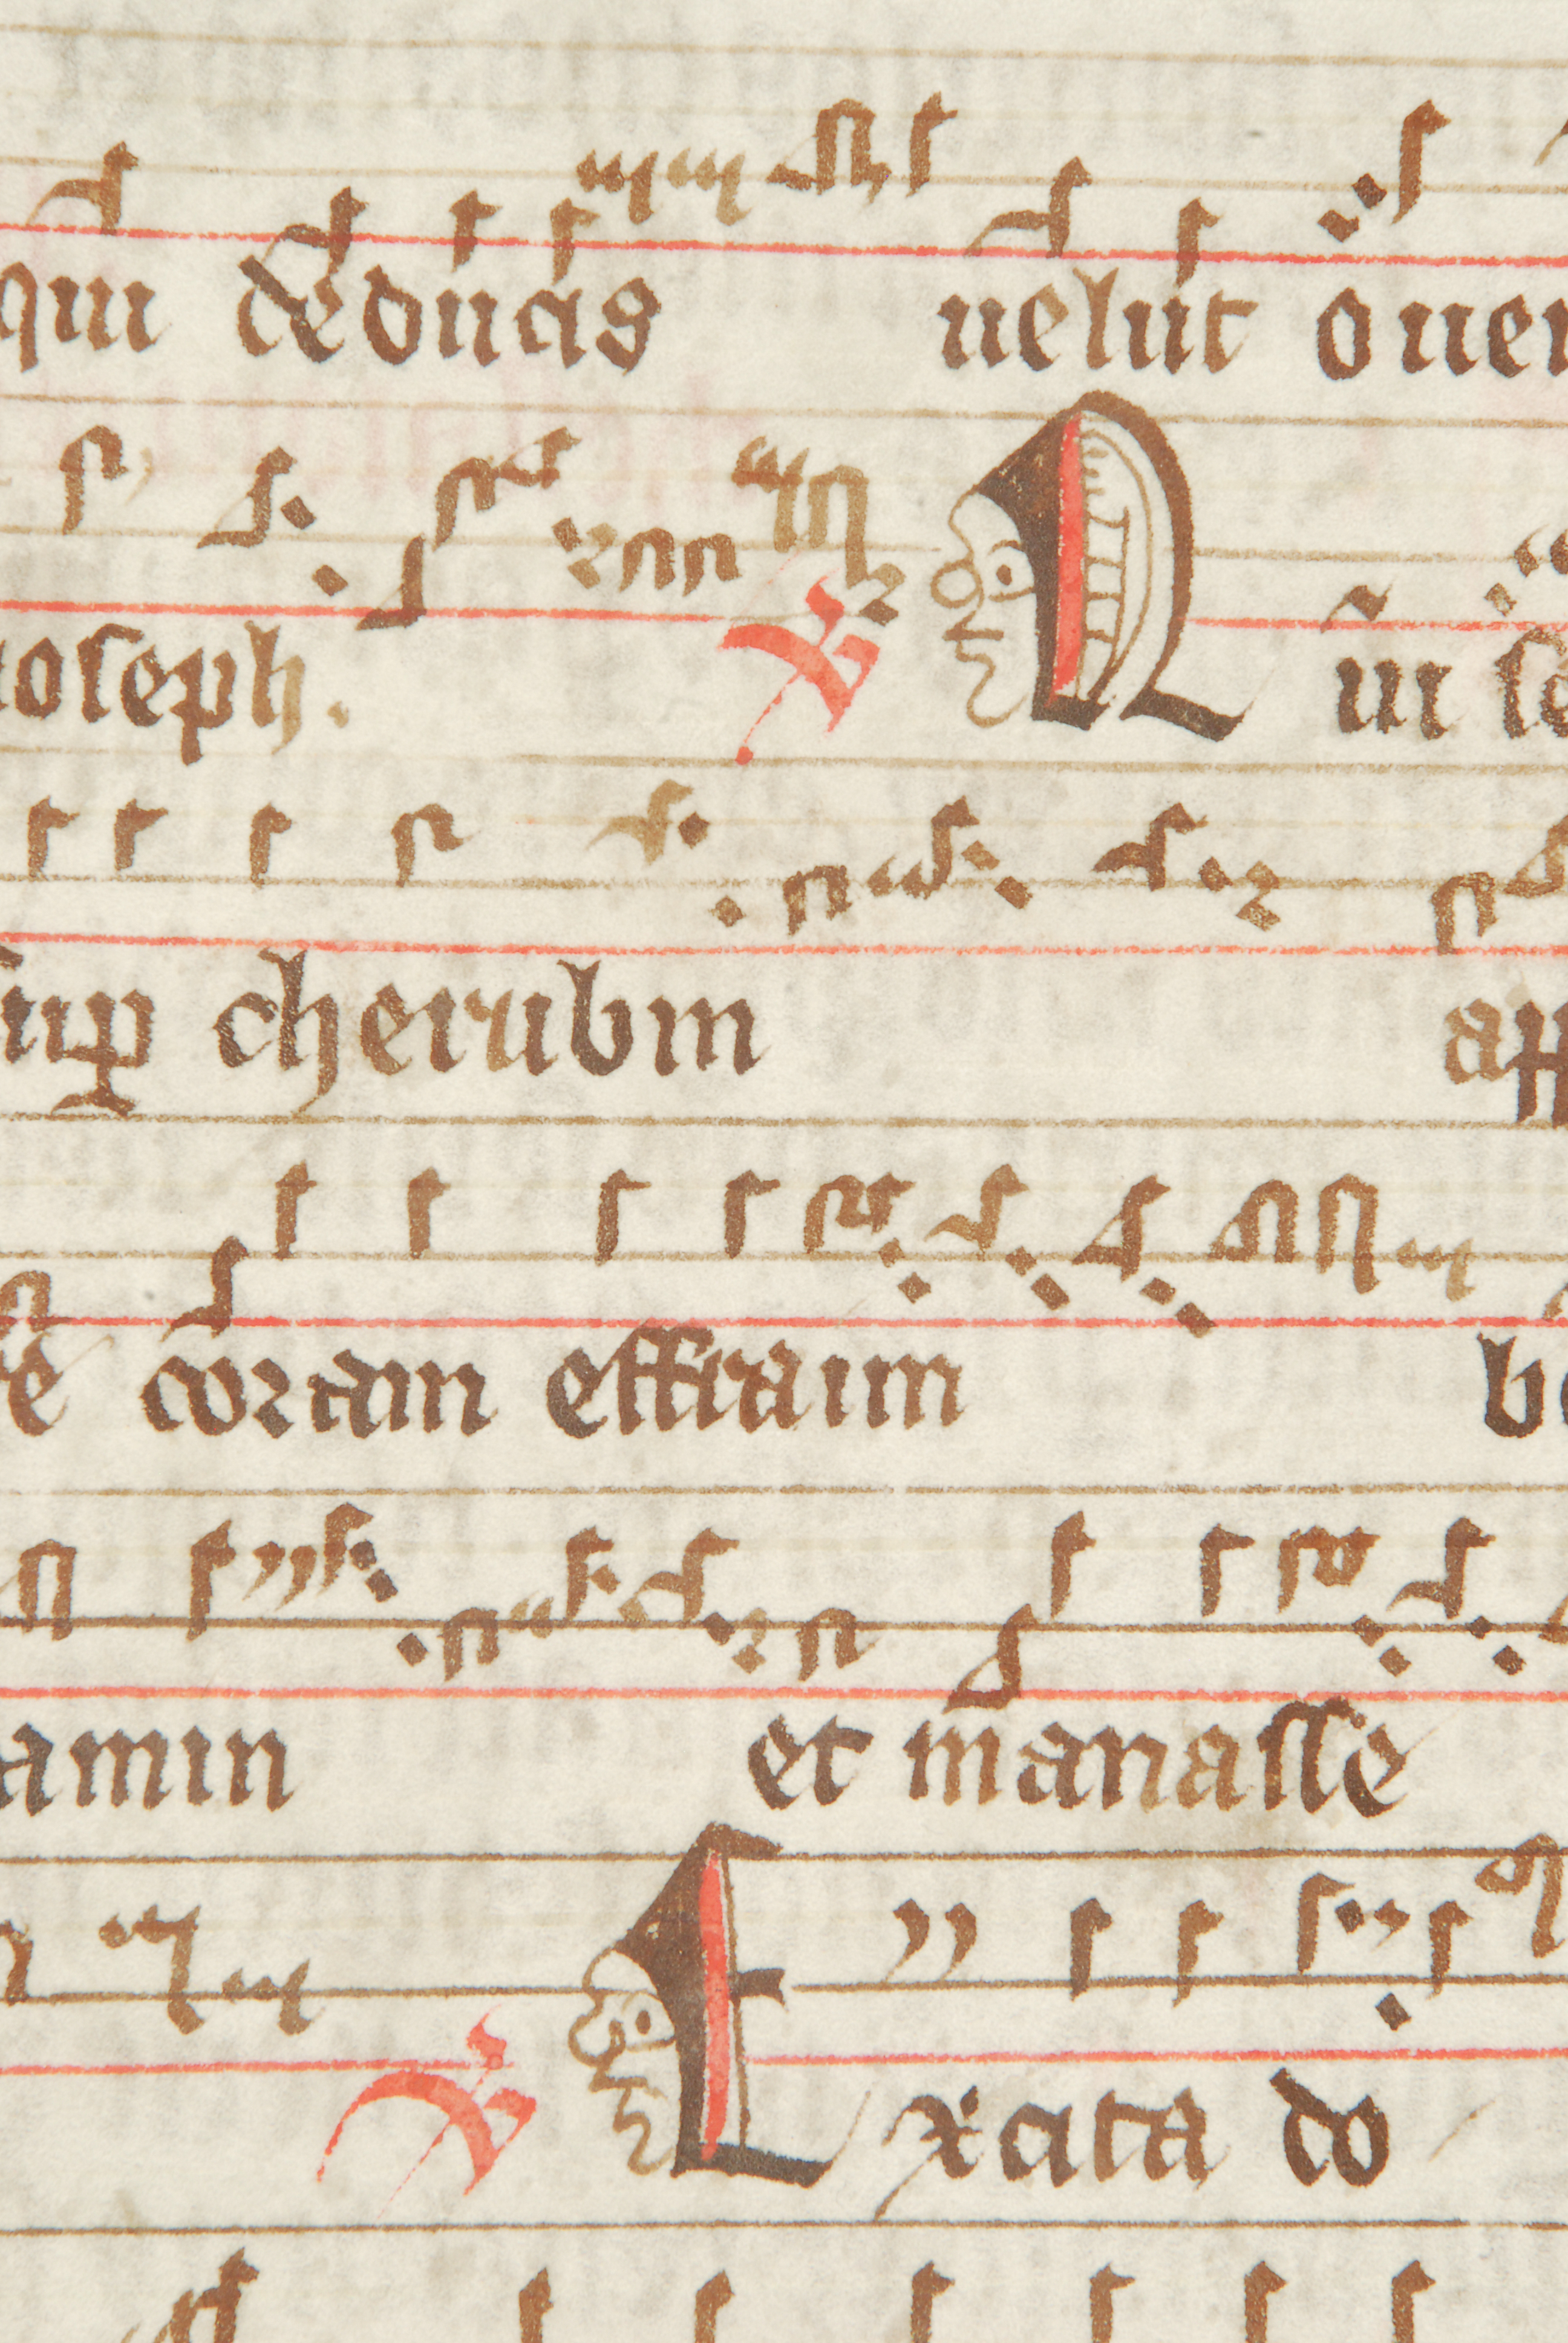 qui deducis uelut ouem
ioseph. ℣ Qui se
sup cherubin app
re coram effraim be
amin et manasse
℣ Excita do